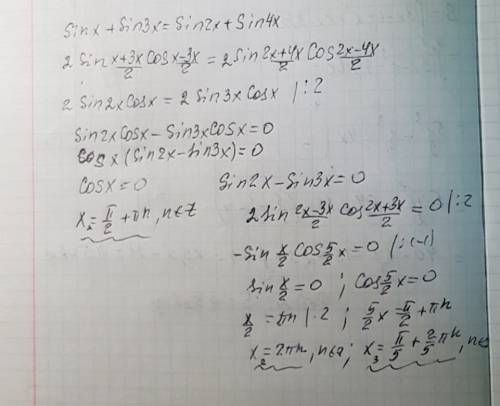 Sinx + Sin3x = Sin2x + Sin4x
2 Sin (x+3x)/2 Cos (x-3x)/2 = 2 Sin (2x+4x)/2 Cos (2x-4x)/2
2 Sin2x Cosx = 2 Sin3x Cosx | :2
Sin2x Cosx - Sin3x Cosx = 0
Cosx (Sin2x - Sin3x) = 0
Cosx = 0 Sin2x - Sin3x = 0
x₁ = π/2 + πn, n∈Z 2 Sin (2x-3x)/2 Cos (2x+3x)/2 = 0 | :2
-Sin x/2 Cos 5/2 x = 0 | :(-1)
Sin x/2 = 0 ; Cos 5/2 x = 0
x/2 = πn | ·2 ; 5/2 x = π/2 + πn
x₂ = 2πn, n∈Z ; x₃ = π/5 + 2/5 πn, n∈